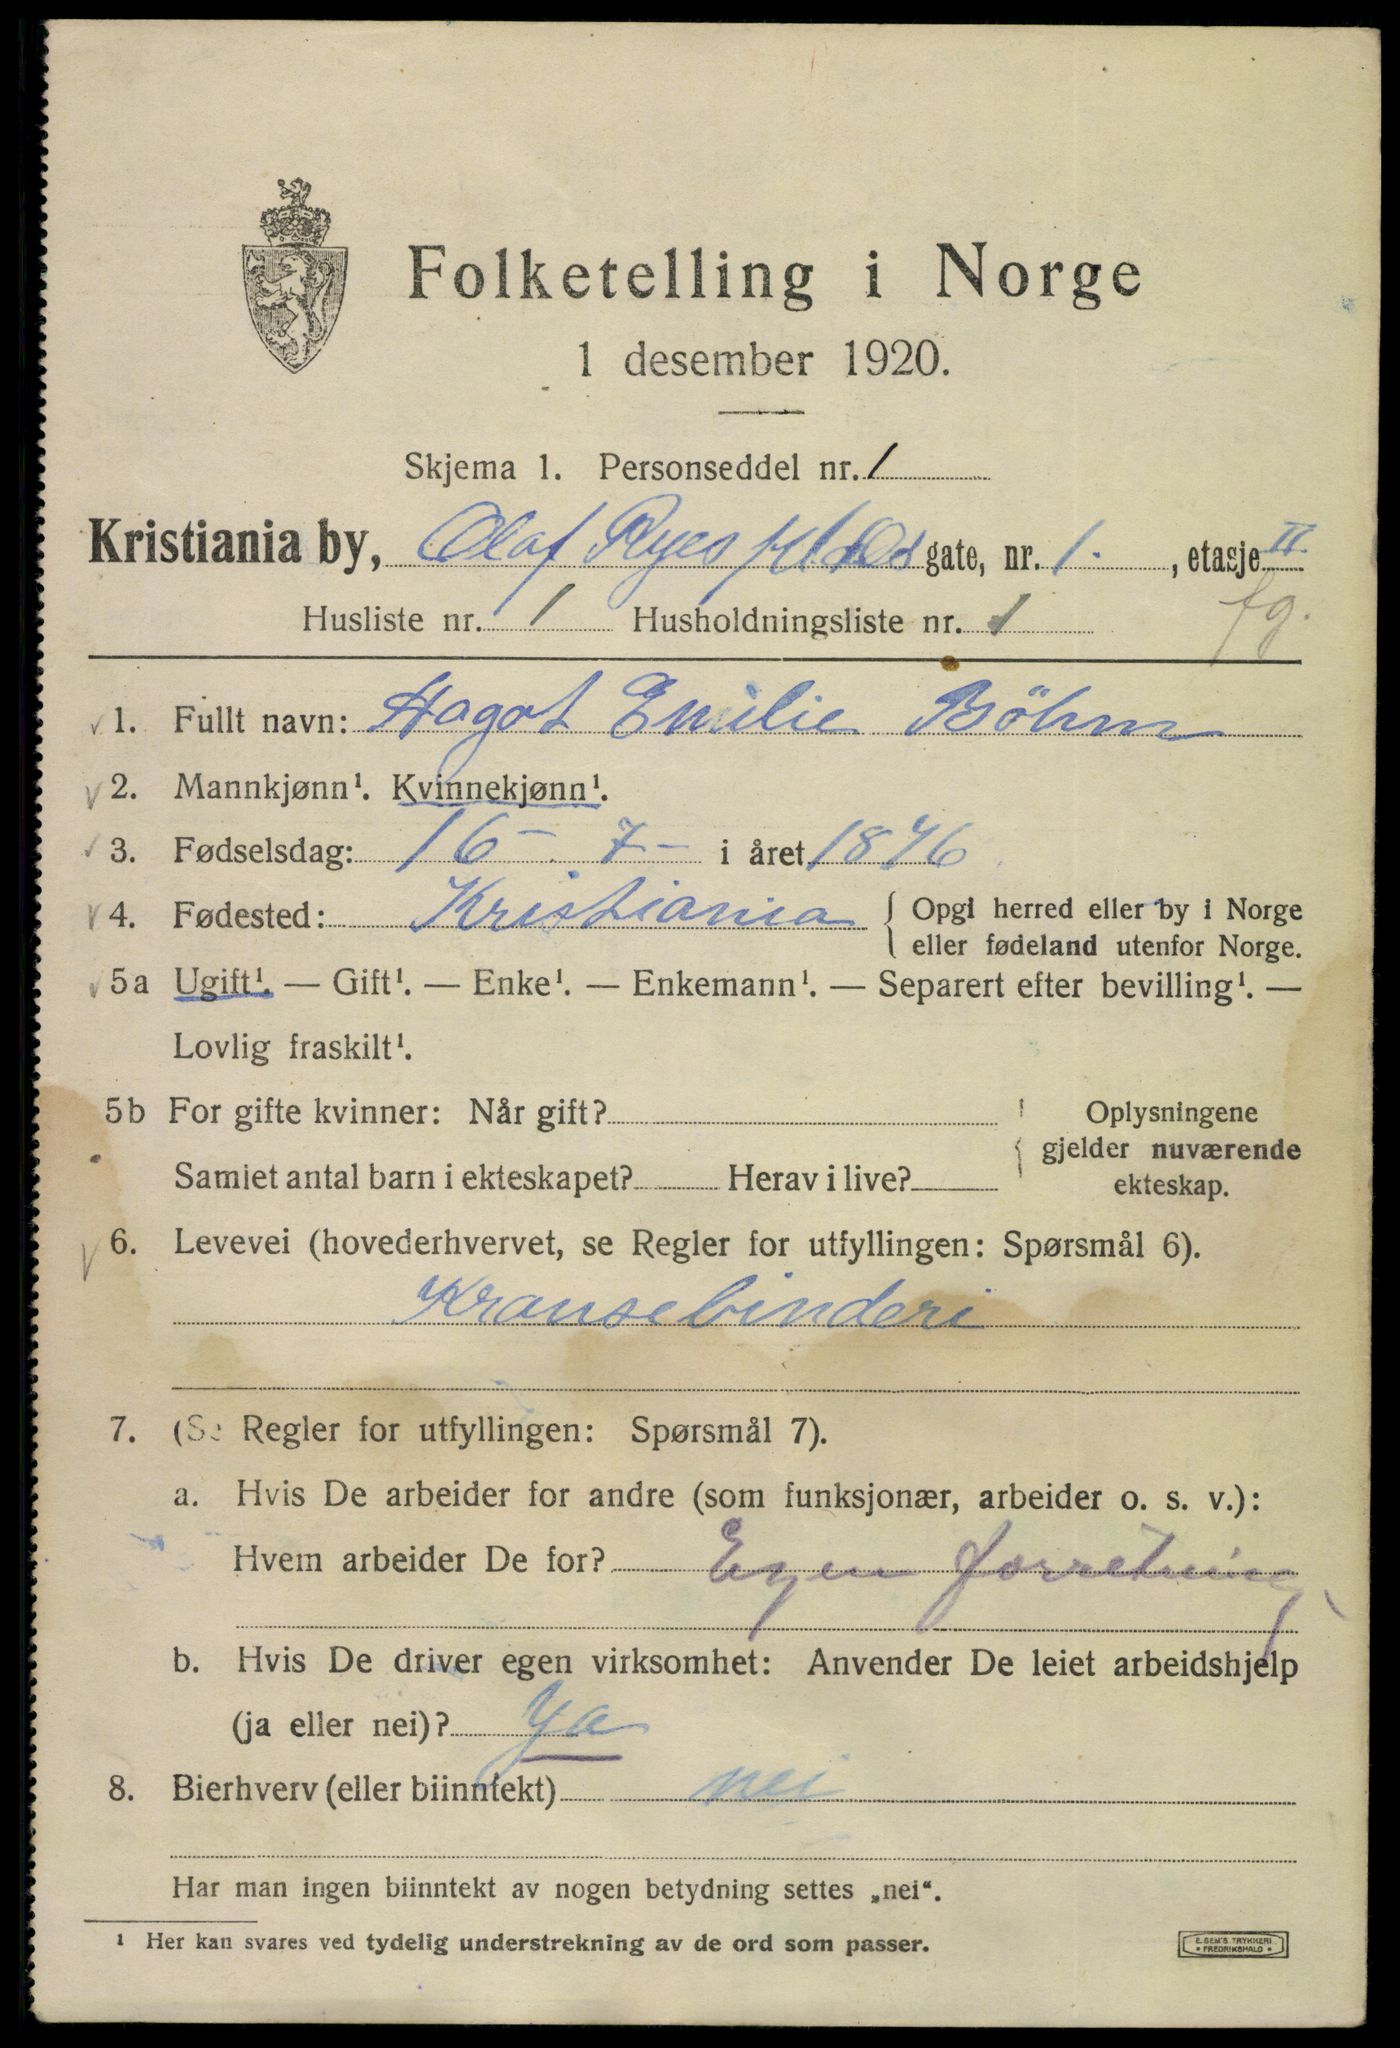 Folketelling i Norge
1 desember 1920.
Skjema 1. Personseddel nr. 1
Kristiania by, Olaf Ryes gate, nr. 1. , etasje II.
Husliste nr. 1 Husholdningsliste nr. 1 fg.
1. Fullt navn: Hagot Emilie Böhm
2. Mannkjønn¹. Kvinnekjønn¹.
3. Fødselsdag: 16 - 7 - i året 1876
4. Fødested: Kristiania { Opgi herred eller by i Norge
eller fødeland utenfor Norge.
5a Ugift¹. — Gift¹. — Enke¹. — Enkemann¹. — Separert efter bevilling¹. —
Lovlig fraskilt¹.
5b For gifte kvinner: Når gift? Oplysningene
gjelder nuværende
Samlet antal barn i ekteskapet? Herav i live? ekteskap.
6. Levevei (hovederhvervet, se Regler for utfyllingen: Spørsmål 6).
Kransebinderi
7. (Se Regler for utfyllingen: Spørsmål 7).
a. Hvis De arbeider for andre (som funksjonær, arbeider o. s. v.):
Hvem arbeider De for? Egen forretning
b. Hvis De driver egen virksomhet: Anvender De leiet arbeidshjelp
(ja eller nei)? Ja
8. Bierhverv (eller biinntekt) nei
Har man ingen biinntekt av nogen betydning settes „nei“.
¹ Her kan svares ved tydelig understrekning av de ord som passer.
E. SEM'S TRYKKERI
• FREDRIKSHALD •